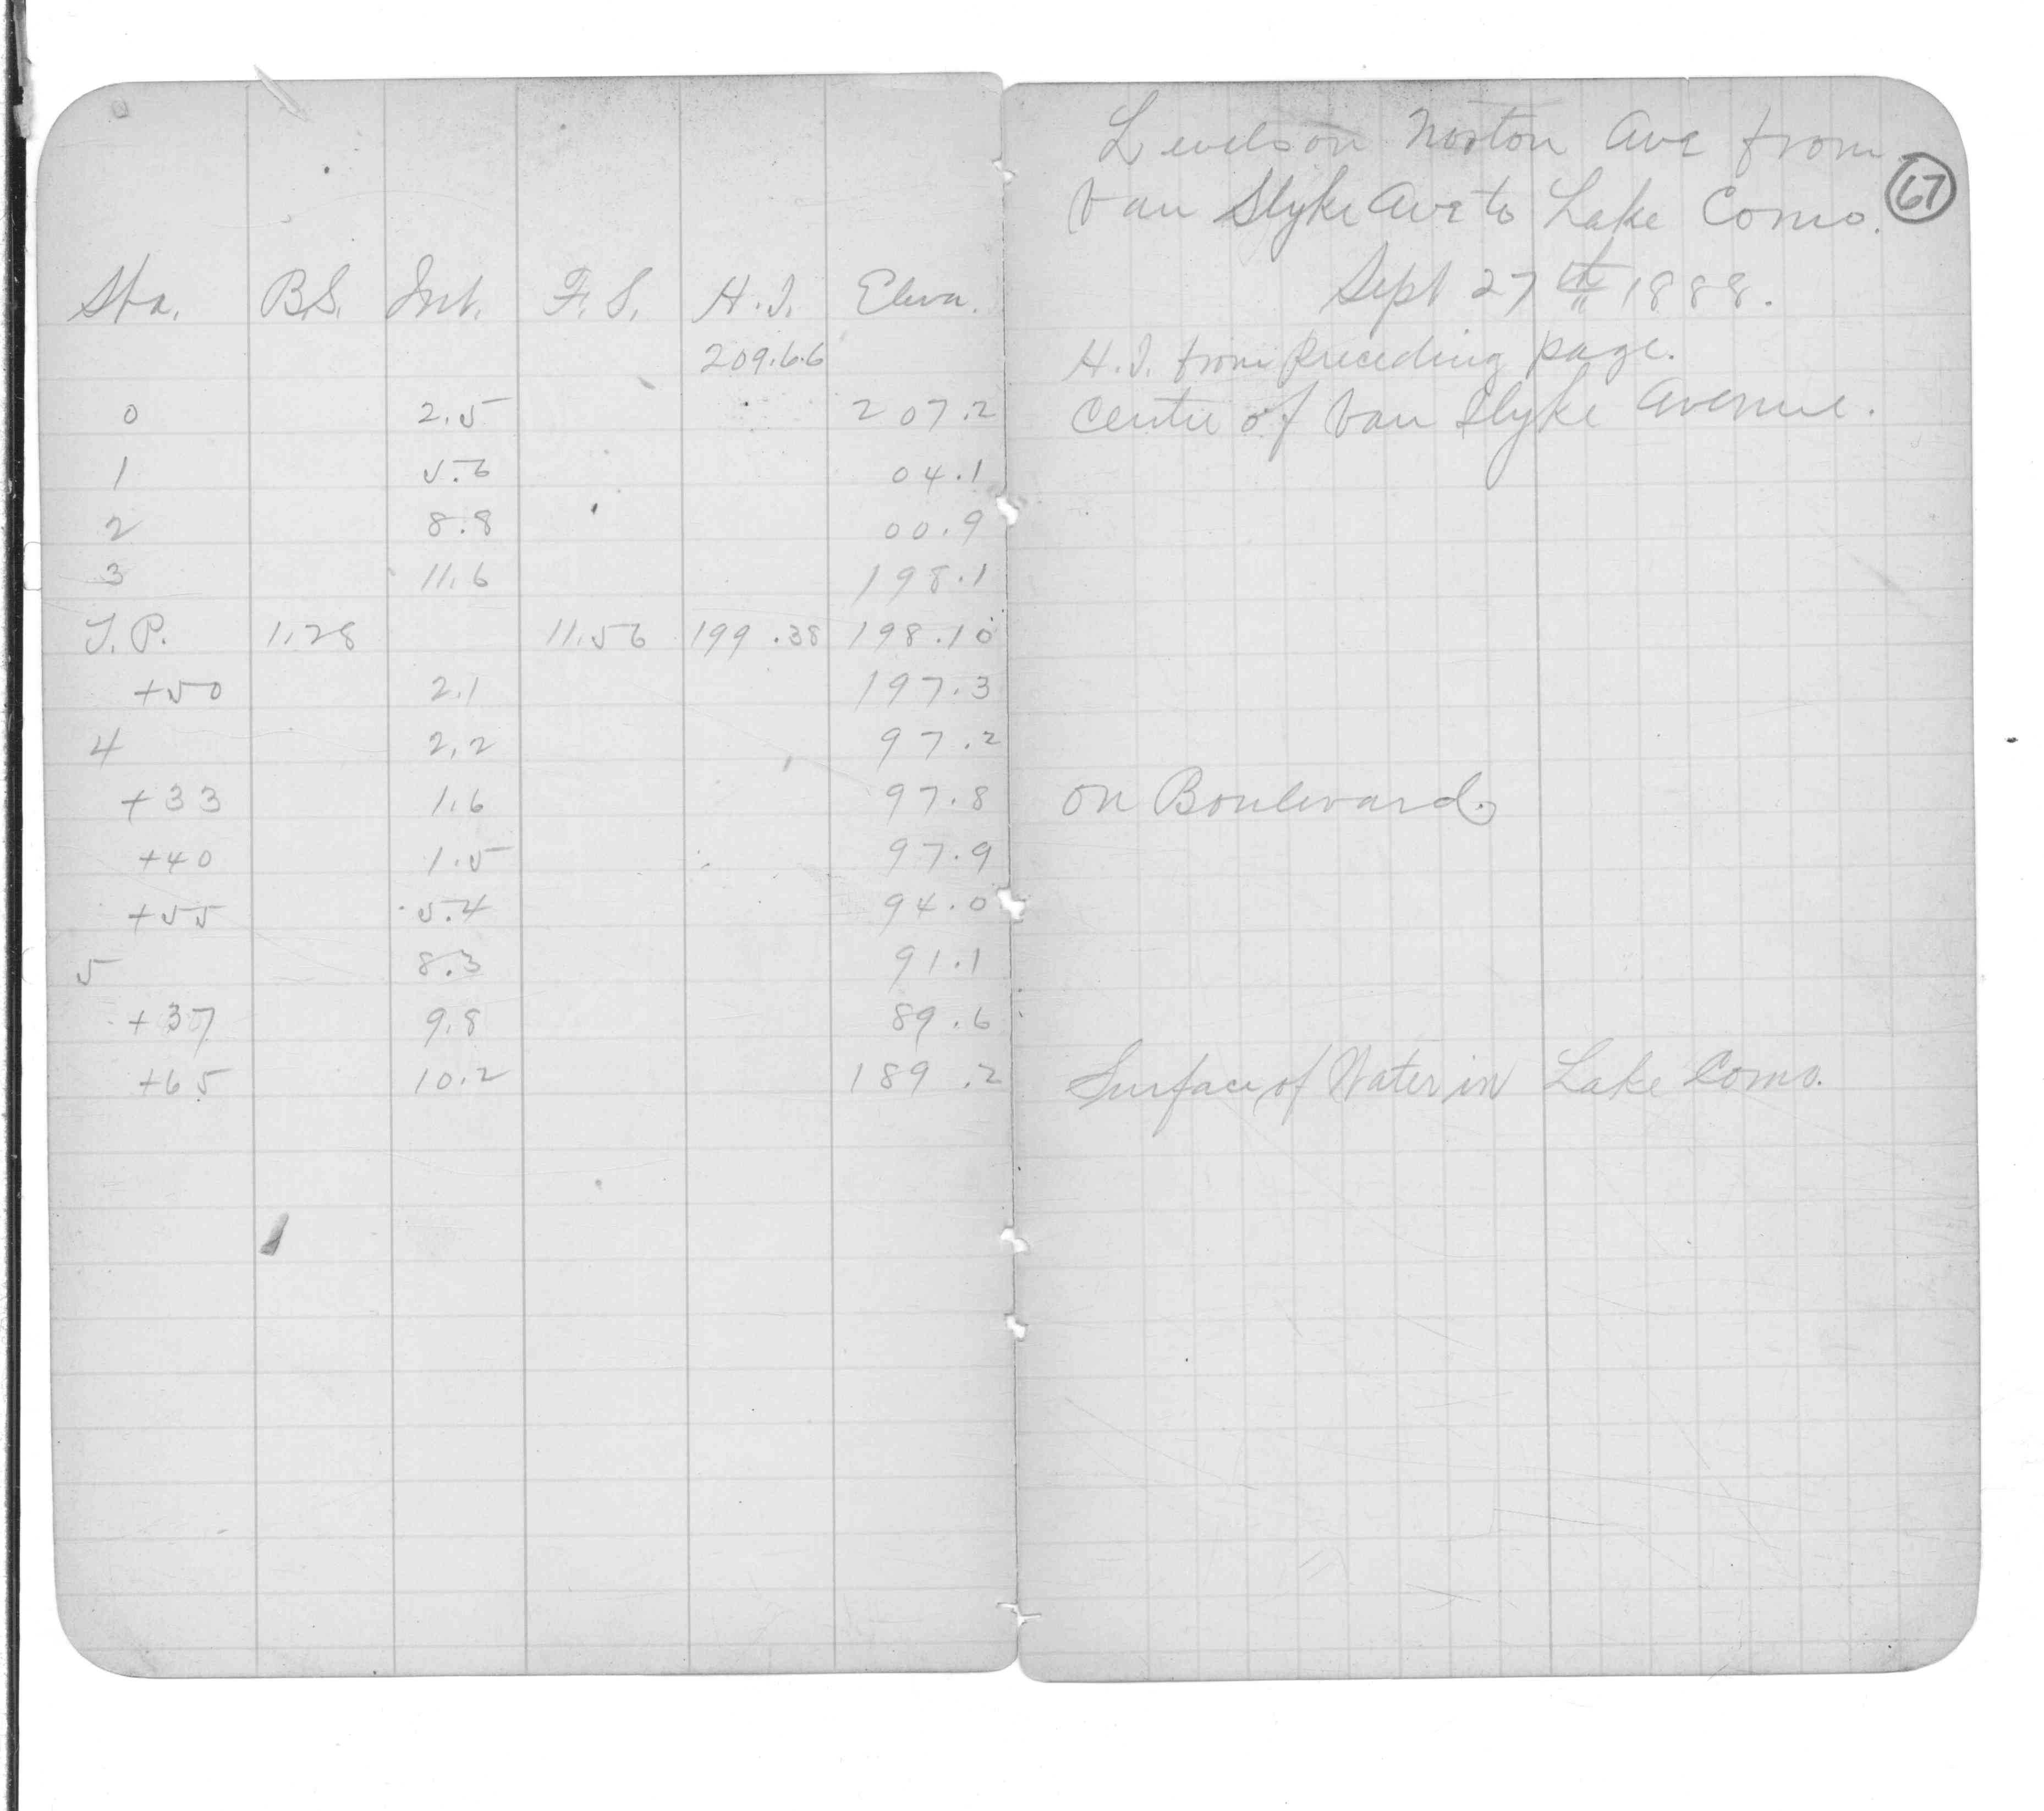 Levels on Norton Ave from
Van Slyke Ave to Lake Como.
67
Sept 27th 1888.
Sta. B.S. Int. F.S. H.I. Eleva.
209.66 H.I. from preceding page.
0 2.5 207.2 Centre of Van Slyke Avenue.
1 5.6 04.1
2 8.8 00.9
3 11.6 198.1
T.P. 1.28 11.56 199.38 198.10
+50 2.1 197.3
4 2.2 97.2
+33 1.6 97.8 on Boulevard.
+40 1.5 97.9
+55 5.4 94.0
5 8.3 91.1
+37 9.8 89.6
+65 10.2 189.2 Surface of Water in Lake Como.